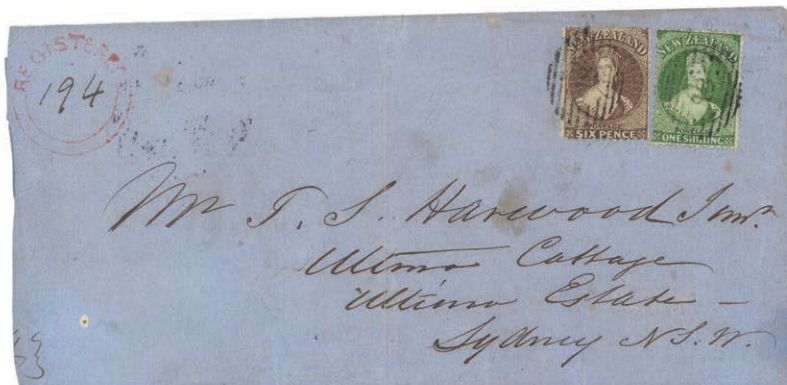 REGISTERED
194
NEW ZEALAND
POSTAGE
SIX PENCE
NEW ZEALAND
ONE SHILLING
Mr T. S. Harwood Junr.
Ultimo Cottage
Ultimo Estate –
Sydney N.S.W.